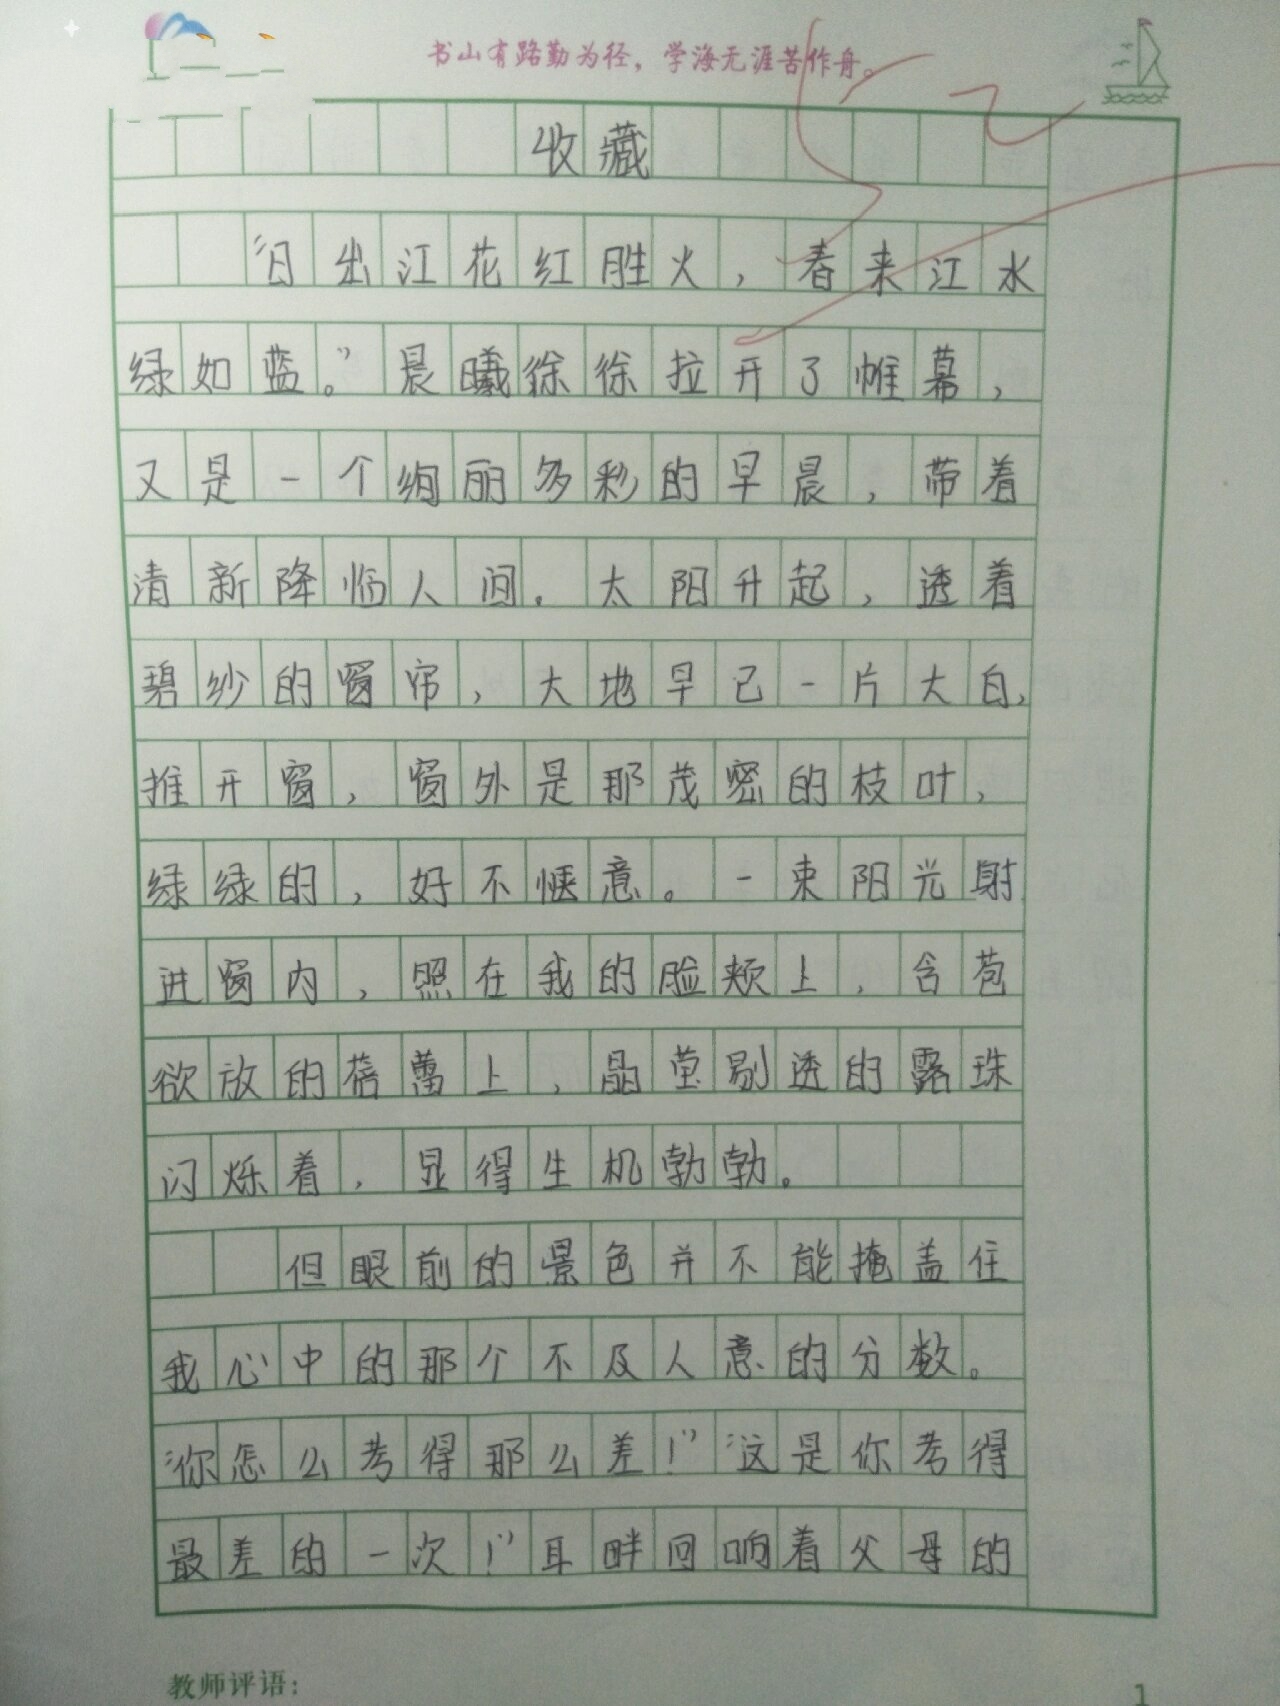 书山有路勤为径，学海无涯苦作舟。
收藏
“日出江花红胜火，春来江水
绿如蓝。”晨曦徐徐拉开了帷幕，
又是一个绚丽多彩的早晨，带着
清新降临人间。太阳升起，透着
碧纱的窗帘，大地早已一片大白，
推开窗，窗外是那茂密的枝叶，
绿绿的，好不惬意。一束阳光射
进窗内，照在我的脸颊上，含苞
欲放的蓓蕾上，晶莹剔透的露珠
闪烁着，显得生机勃勃。
但眼前的景色并不能掩盖住
我心中的那个不及人意的分数。
“你怎么考得那么差！”“这是你考得
最差的一次！”耳畔回响着父母的
教师评语：
1